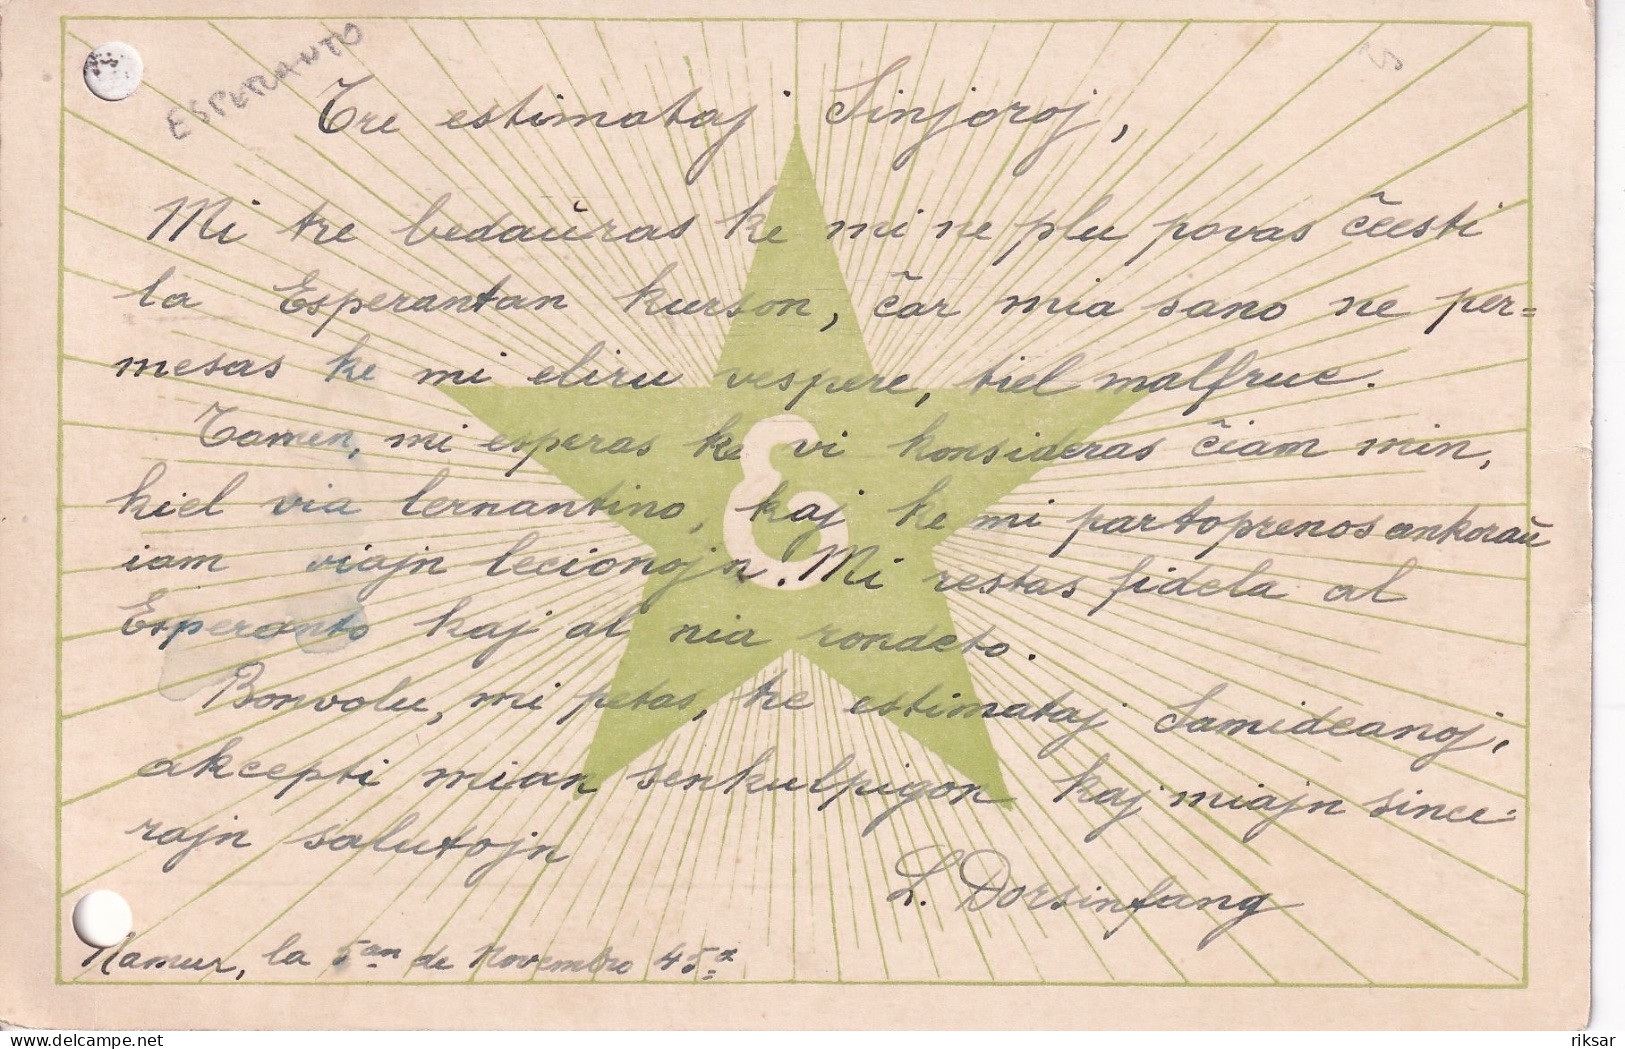 ESPERANTO
Tre estimataj Sinjoroj,
Mi tre bedaŭras ke mi ne plu povas ĉeesti
la Esperantan kurson, ĉar mia sano ne per=
mesas ke mi eliru vespere, tiel malfrue.
Tamen, mi esperas ke vi konsideras ĉiam min,
kiel via lernantino, kaj ke mi partoprenos ankoraŭ
iam viajn lecionojn. Mi restas fidela al
Esperanto kaj al nia rondeto.
Bonvolu, mi petas, tre estimataj Samideanoj,
akcepti mian senkulpigon kaj miajn since-
rajn salutojn
L. Dorsinfang
Namur, la 5an de Novembro 45a
E
riksar
delcampe.net